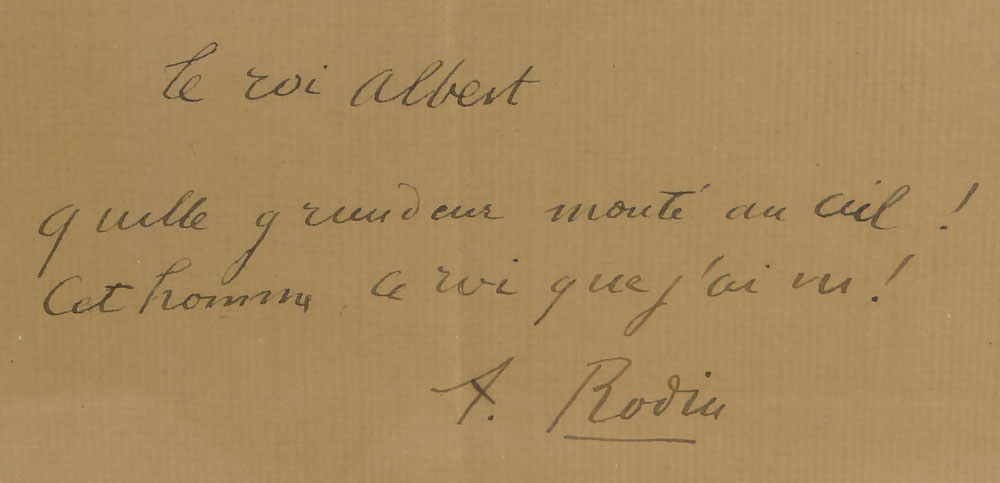 le roi Albert
quelle grandeur monté au ciel !
Cet homme ce roi que j'ai vu !
A. Rodin